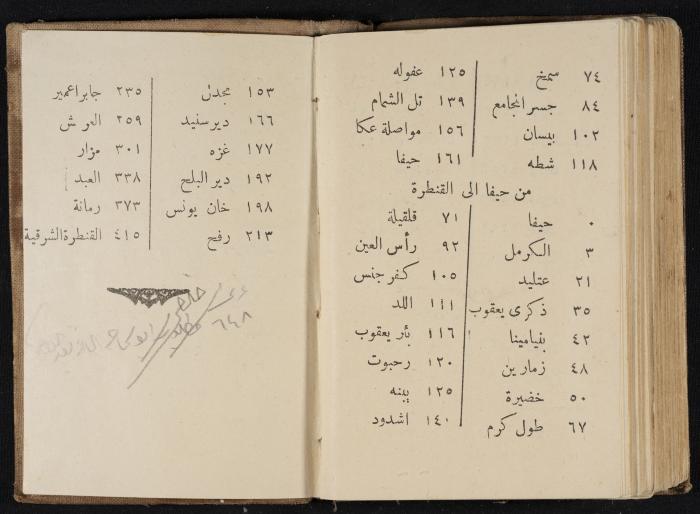 ٧٤ سمخ
٨٤ جسر المجامع
١٠٢ بيسان
١١٨ شطه
١٢٥ عفوله
١٣٩ تل الشمام
١٥٦ مواصلة عكا
١٦١ حيفا
من حيفا الى القنطرة
٠ حيفا
٣ الكرمل
٢١ عتليد
٣٥ ذكرى يعقوب
٤٢ بنيامينا
٤٨ زمارين
٥٠ خضيرة
٦٧ طول كرم
٧١ قلقيلة
٩٢ رأس العين
١٠٥ كفر جنس
١١١ اللد
١١٦ بأر يعقوب
١٢٠ رحبوت
١٢٥ يبنه
١٤٠ اشدود
١٥٣ مجدل
١٦٦ دير سنيد
١٧٧ غزه
١٩٢ دير البلح
١٩٨ خان يونس
٢١٣ رفح
٢٣٥ جابر اعمير
٢٥٩ العرش
٣٠١ مزار
٣٣٨ العبد
٣٧٣ رمانة
٤١٥ القنطرة الشرقية
٦٤٨